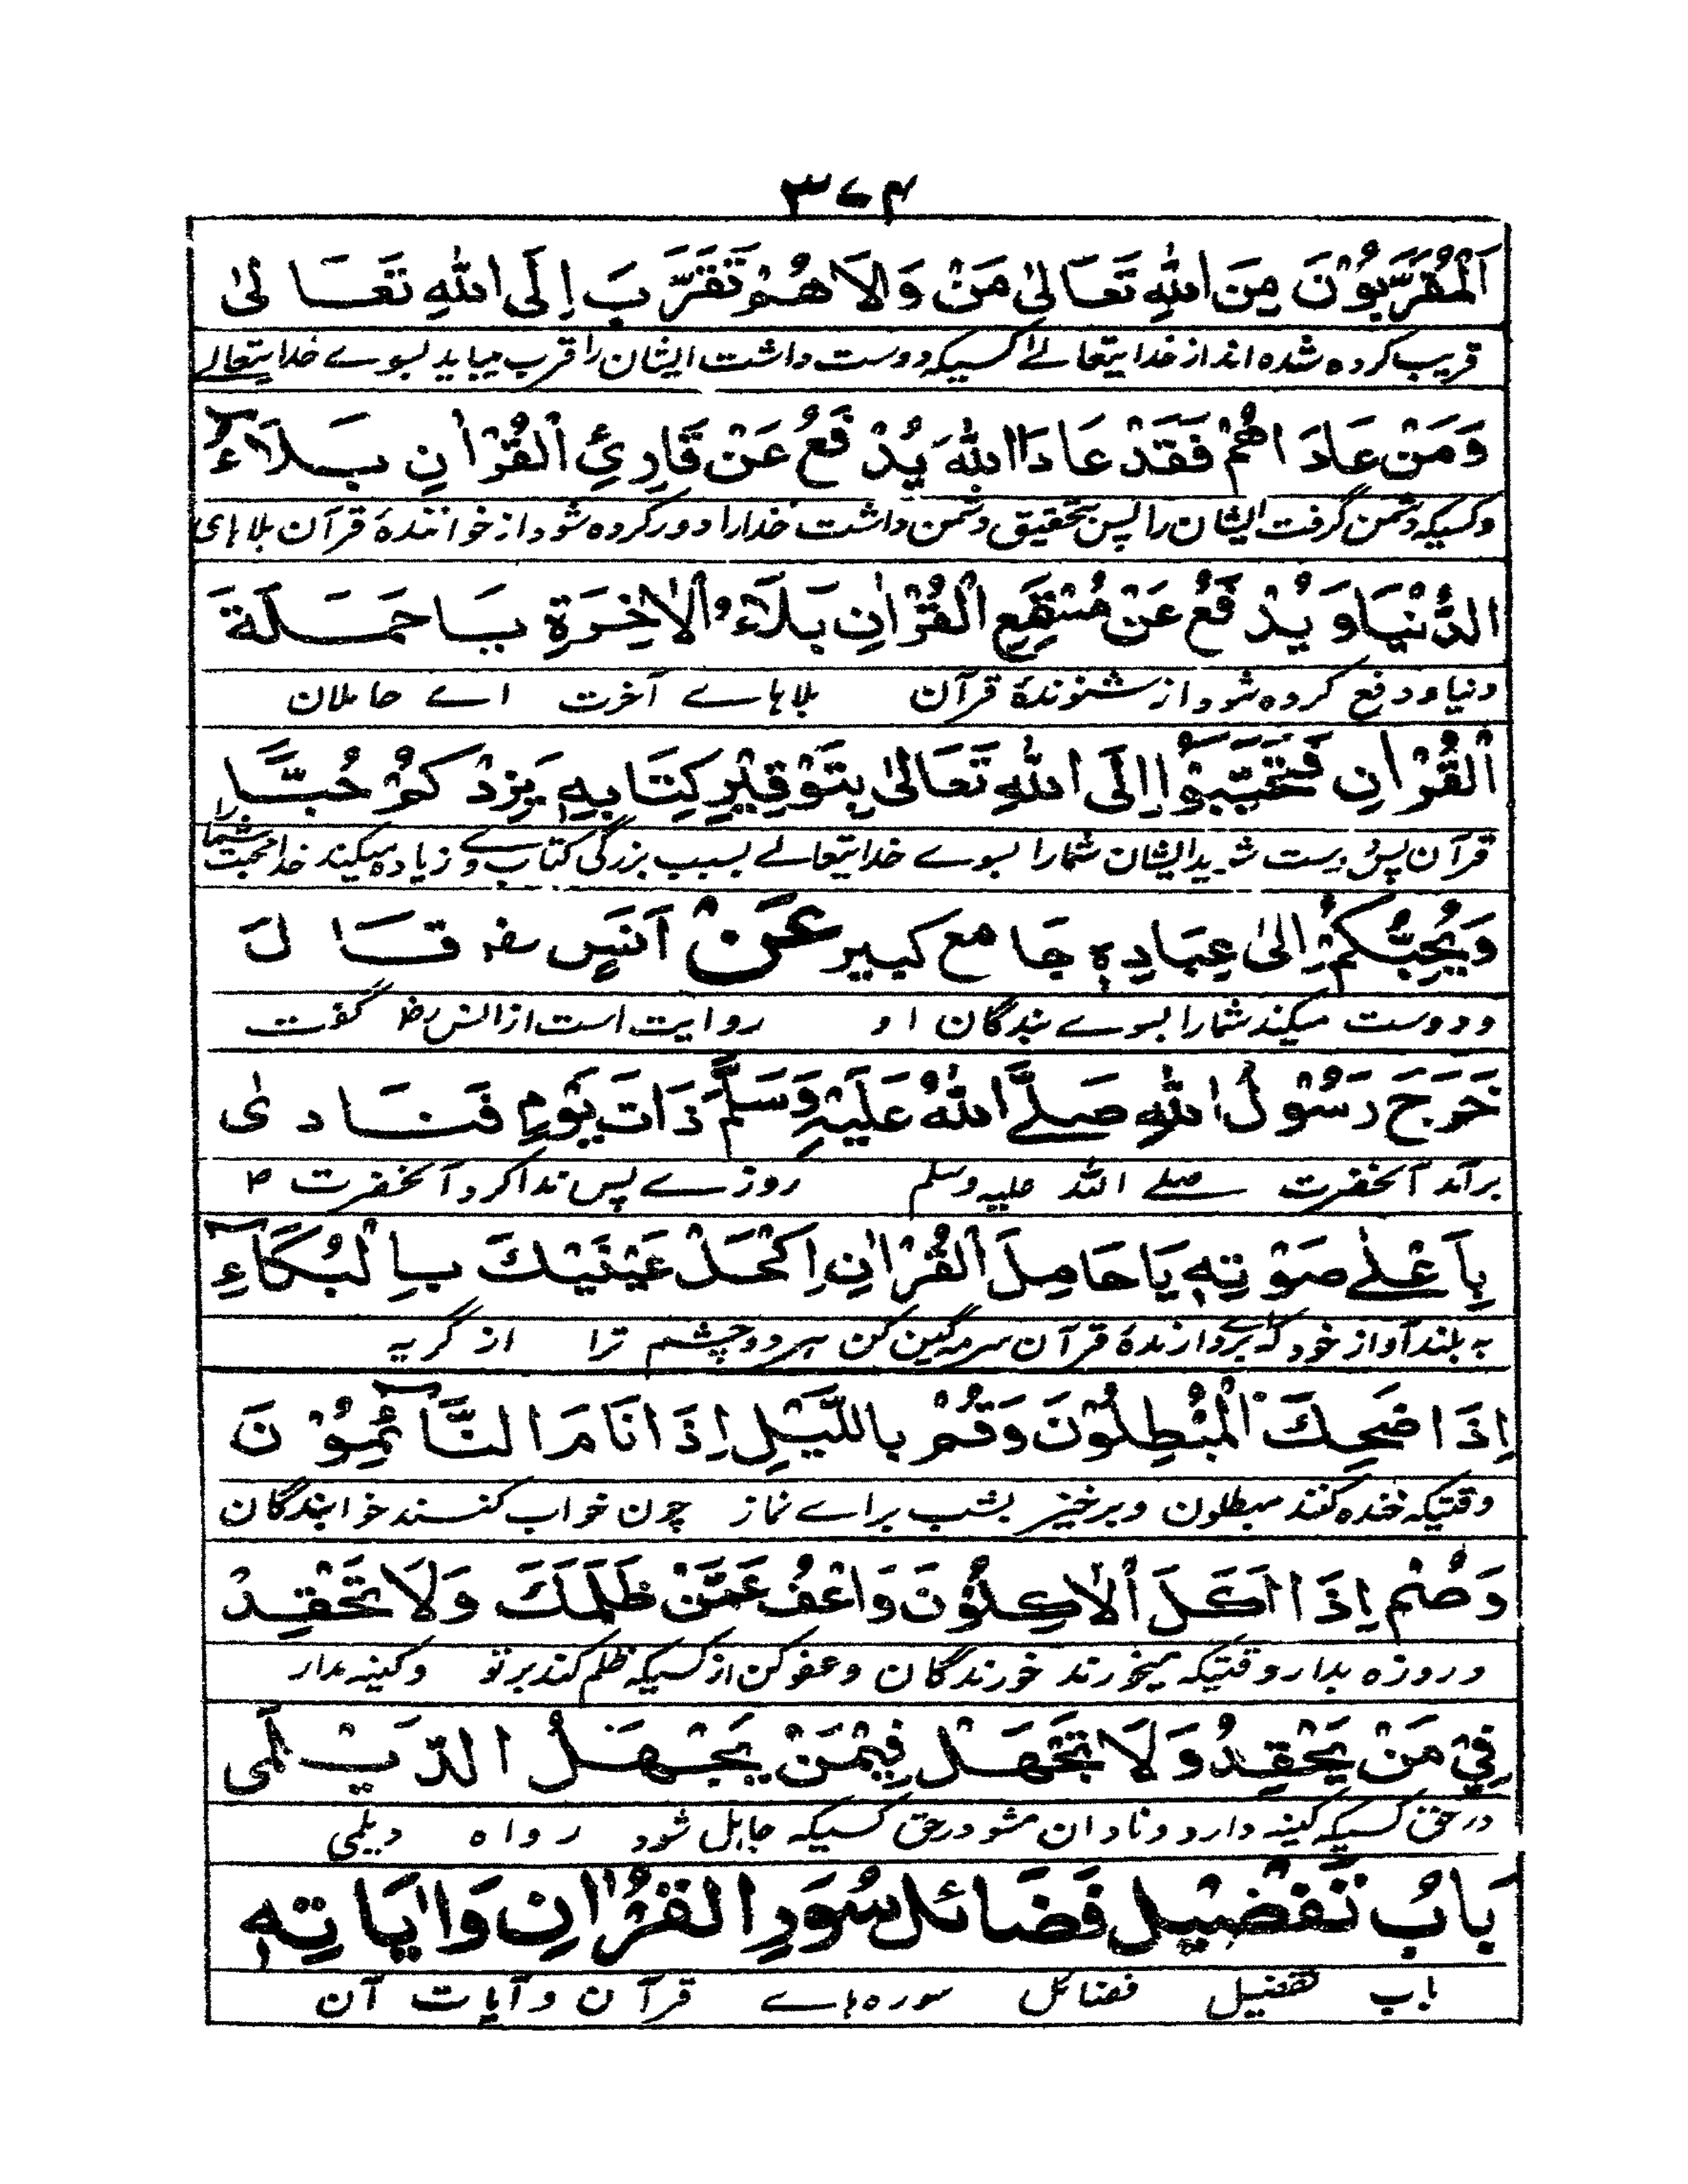 ٣٧٤
اَلْمُقَرَّبُوْنَ مِنَ اللهِ تَعَالىٰ مَنْ وَالَاهُمْ تَقَرَّبَ اِلَى اللهِ تَعَالىٰ
قریب کرده شده اند از خدایتعالے کسیکه دوست داشت ایشان را قرب میابد بسوے خدایتعالے
وَمَنْ عَادَاهُمْ فَقَدْ عَادَا اللهَ يُدْفَعُ عَنْ قَارِئِ الْقُرْاٰنِ بَلَاءُ
وکسیکه دشمن گرفت ایشان را پس تحقیق دشمن داشت خدا را دور کرده شود از خوانندۂ قرآن بلاہای
الدُّنْيَا وَيُدْفَعُ عَنْ مُسْتَمِعِ الْقُرْاٰنِ بَلَاءُ الْاٰخِرَةِ يَاحَمَلَةَ
دنیا و دفع کرده شود از شنوندۂ قرآن بلاہاے آخرت اے حاملان
الْقُرْاٰنِ فَتَحَبَّبُوْا اِلَى اللهِ تَعَالىٰ بِتَوْقِيْرِ كِتَابِهٖ يَزِدْكُمْ حُبًّا
قرآن پس دوست شوید ایشان شما را بسوے خدایتعالے بسبب بزرگی کتاب وے زیاده میکند خدا محبت شما را
وَيُحِبُّكُمْ اِلىٰ عِبَادِهٖ جَامع كبير عَنْ اَنَسٍ رضہ قَالَ
و دوست میکند شما را بسوے بندگان او روایت است از انس رضہ گفت
خَرَجَ رَسُوْلُ اللهِ صَلَّے اللهُ عَلَيْهِ وَسَلَّمَ ذَاتَ يَوْمٍ فَنَادىٰ
برآمد آنحضرت صلے اللہ علیہ وسلم روزے پس ندا کرد آنحضرت ؐ
بِاَعْلٰے صَوْتِهٖ يَاحَامِلَ الْقُرْاٰنِ اِكْحَلْ عَيْنَيْكَ بِالْبُكَاءِ
بہ بلند آواز خود کہ اے بردارندۂ قرآن سرمگین کن ہر دو چشم ترا از گریہ
اِذَا ضَحِكَ الْمُبْطِلُوْنَ وَقُمْ بِاللَّيْلِ اِذَا نَامَ النَّائِمُوْنَ
وقتیکہ خنده کنند مبطلون وبرخیز بشب براے نماز چون خواب کنند خوابندگان
وَصُمْ اِذَا اَكَلَ الْاٰكِلُوْنَ وَاعْفُ عَمَّنْ ظَلَمَكَ وَلَا تَحْقِدْ
وروزه بدار وقتیکہ میخورند خورندگان وعفو کن از کسیکہ ظلم کند بر تو وکینہ مدار
فِيْ مَنْ يَحْقِدُ وَلَا تَجْهَلْ فِيْمَنْ يَجْهَلُ الدَّيْلَمى
در حق کسیکہ کینہ دارد و نادان مشو در حق کسیکہ جاہل شود رواه دیلمی
بَابُ تَفْضِيْلِ فَضَائل سُوَرِ الْقُرْاٰنِ وَاٰيَاتِهٖ
باب تفضیل فضائل سورہ ہاے قرآن و آیات آن